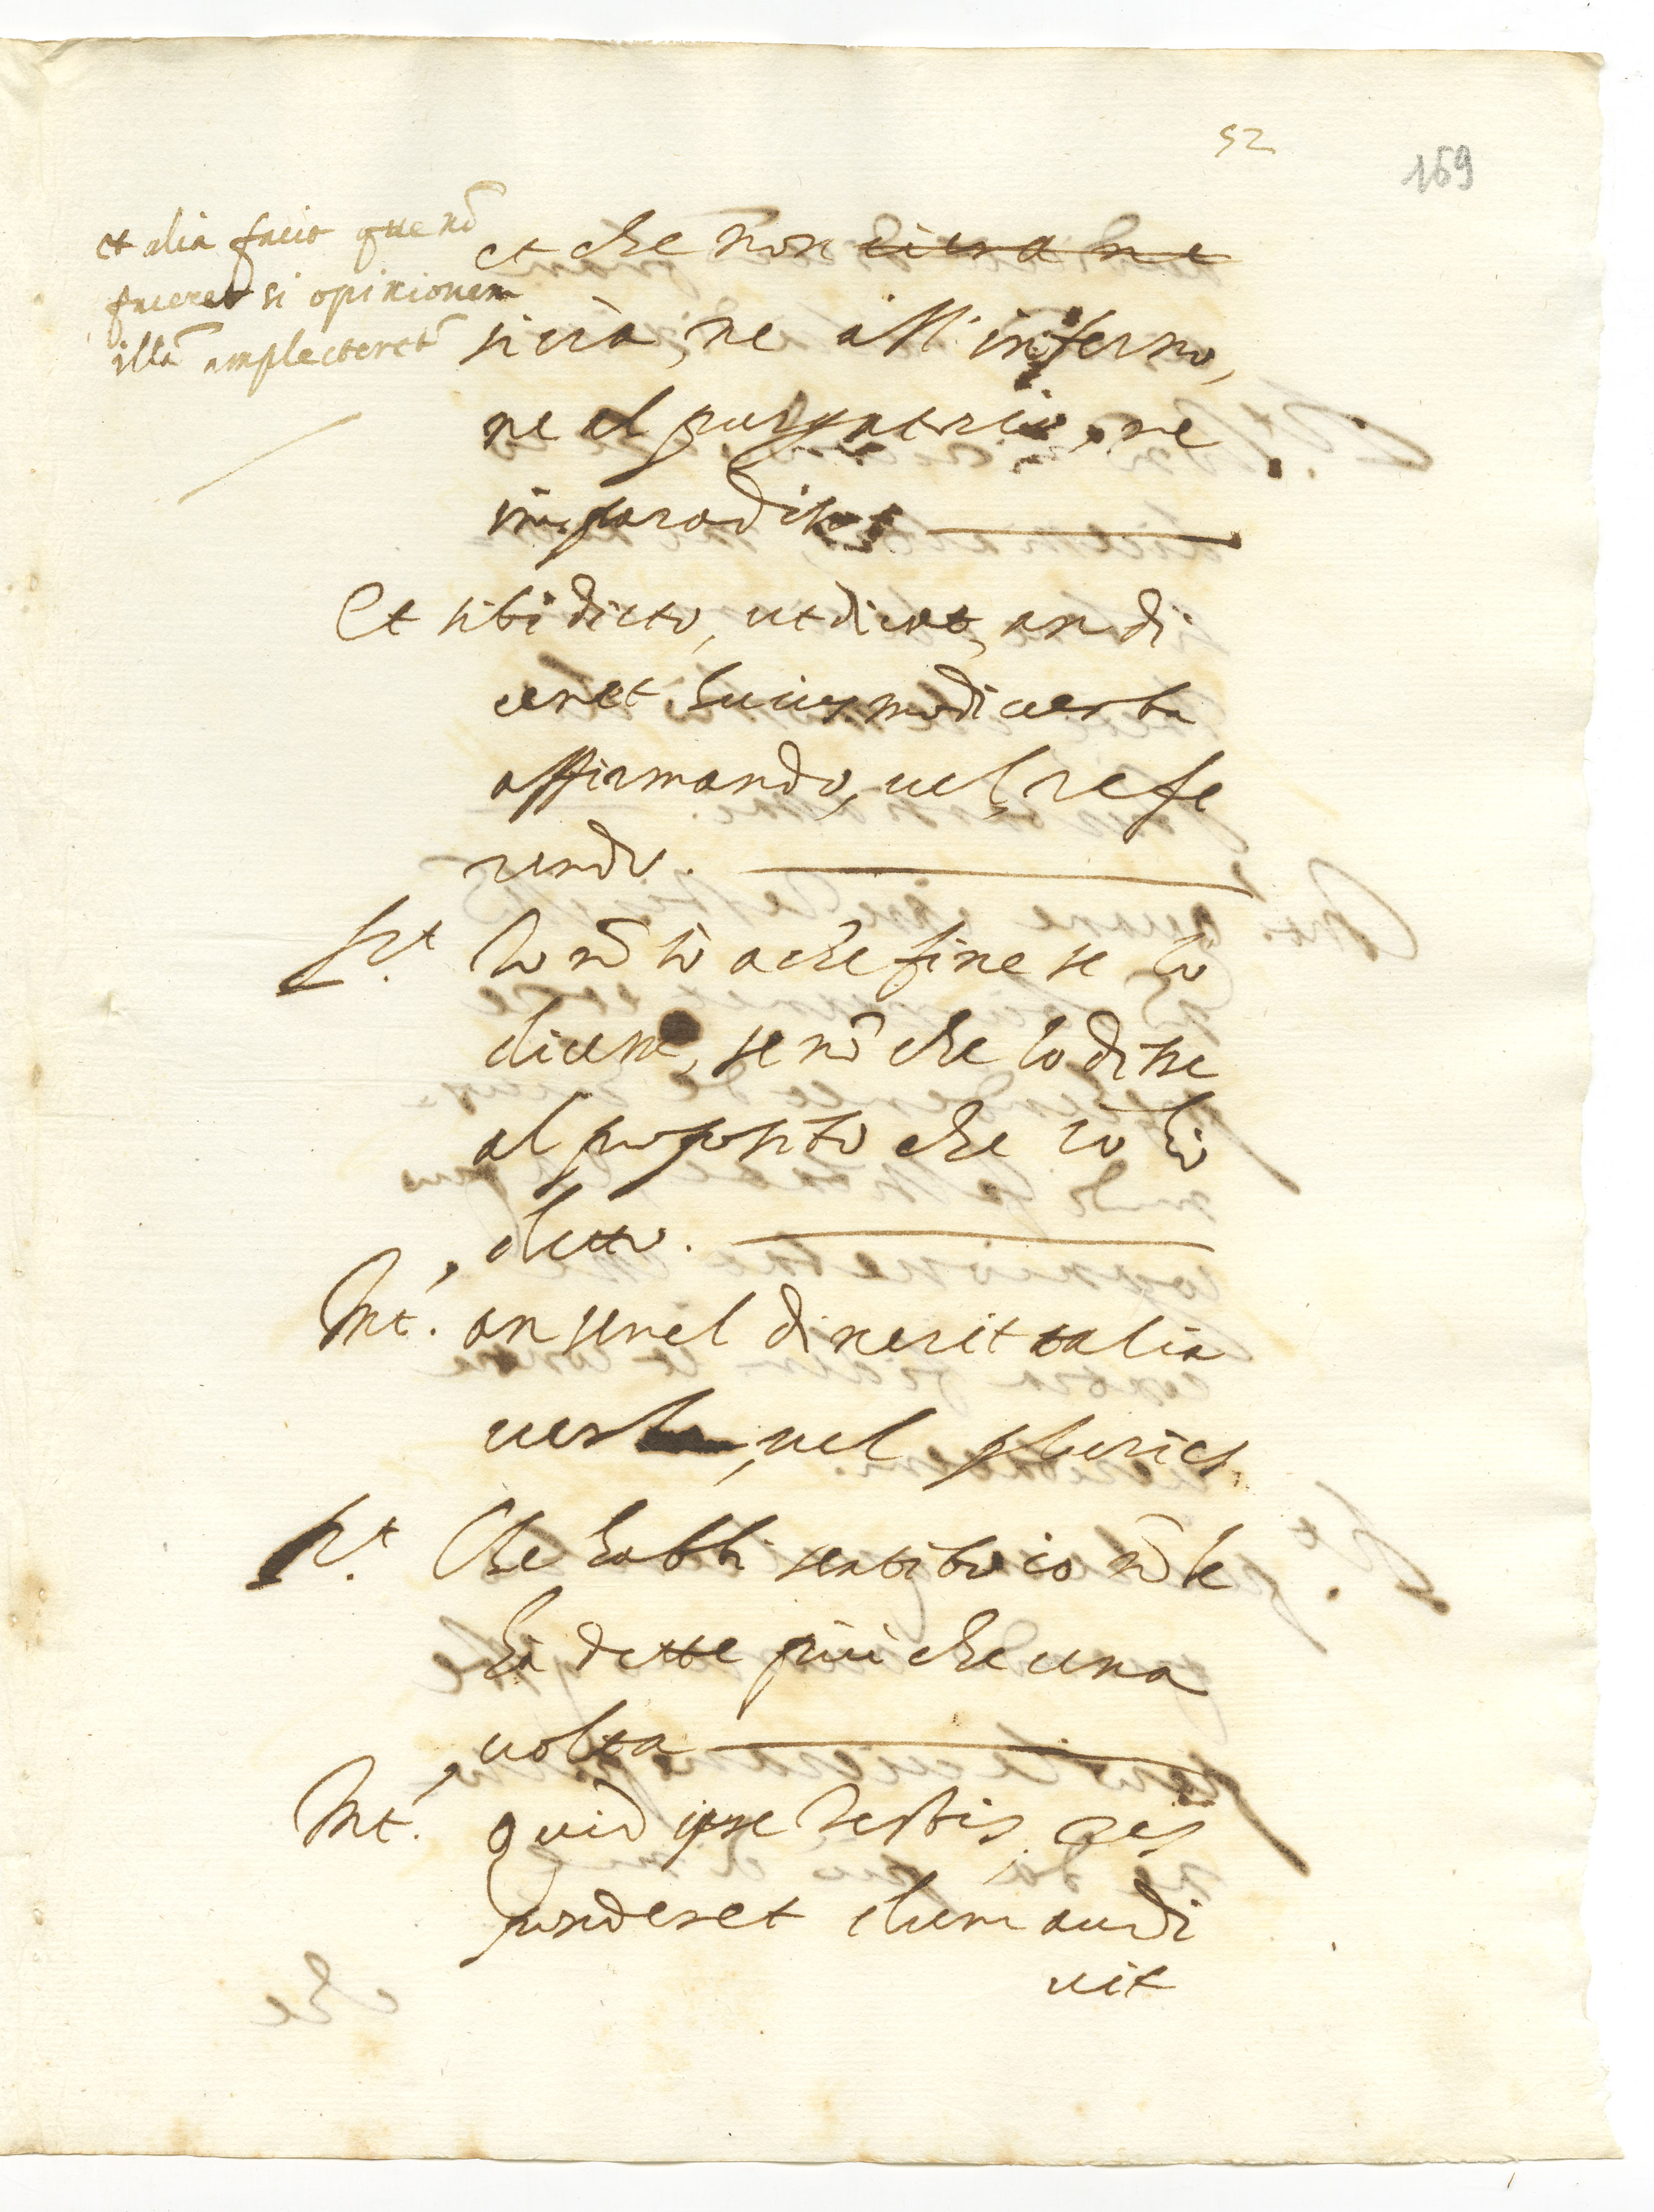 52
169
et alia facit que nō
faceret si opinionem
illā amplecteret̄
et che non ci era ne
si uà, ne all'inferno,
ne al purgatorio, ne
in paradiso
Et sibi dicto, ut dicat, an di
ceret huiusmodi uerba
affirmando, uel refe
rendo.
Rt. Io nō sò a che fine se lo
dicesse, se nō che lo disse
al proposito che io hò
detto.
Int. an semel dixerit talia
uerba, uel pluries.
Rt. Che habbi sentito io nō le
hà dette più che una
uolta
Int. quid ipse testis res
ponderet dum audi
uit